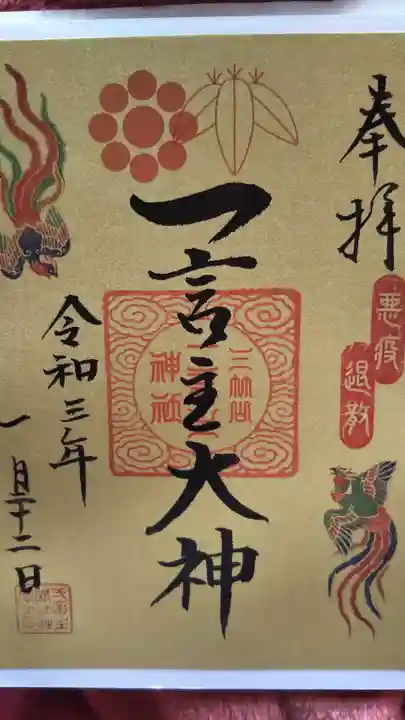 奉拝
悪疫
退散
一言主大神
三竹
神社
令和三年
一月二十二日